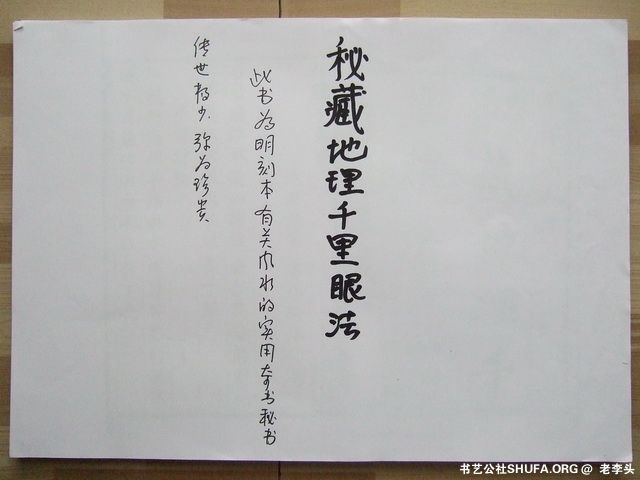 秘藏地理千里眼法
此书为明刻本有关风水的实用奇书秘书
传世极少.弥为珍贵
书艺公社SHUFA.ORG @ 老李头